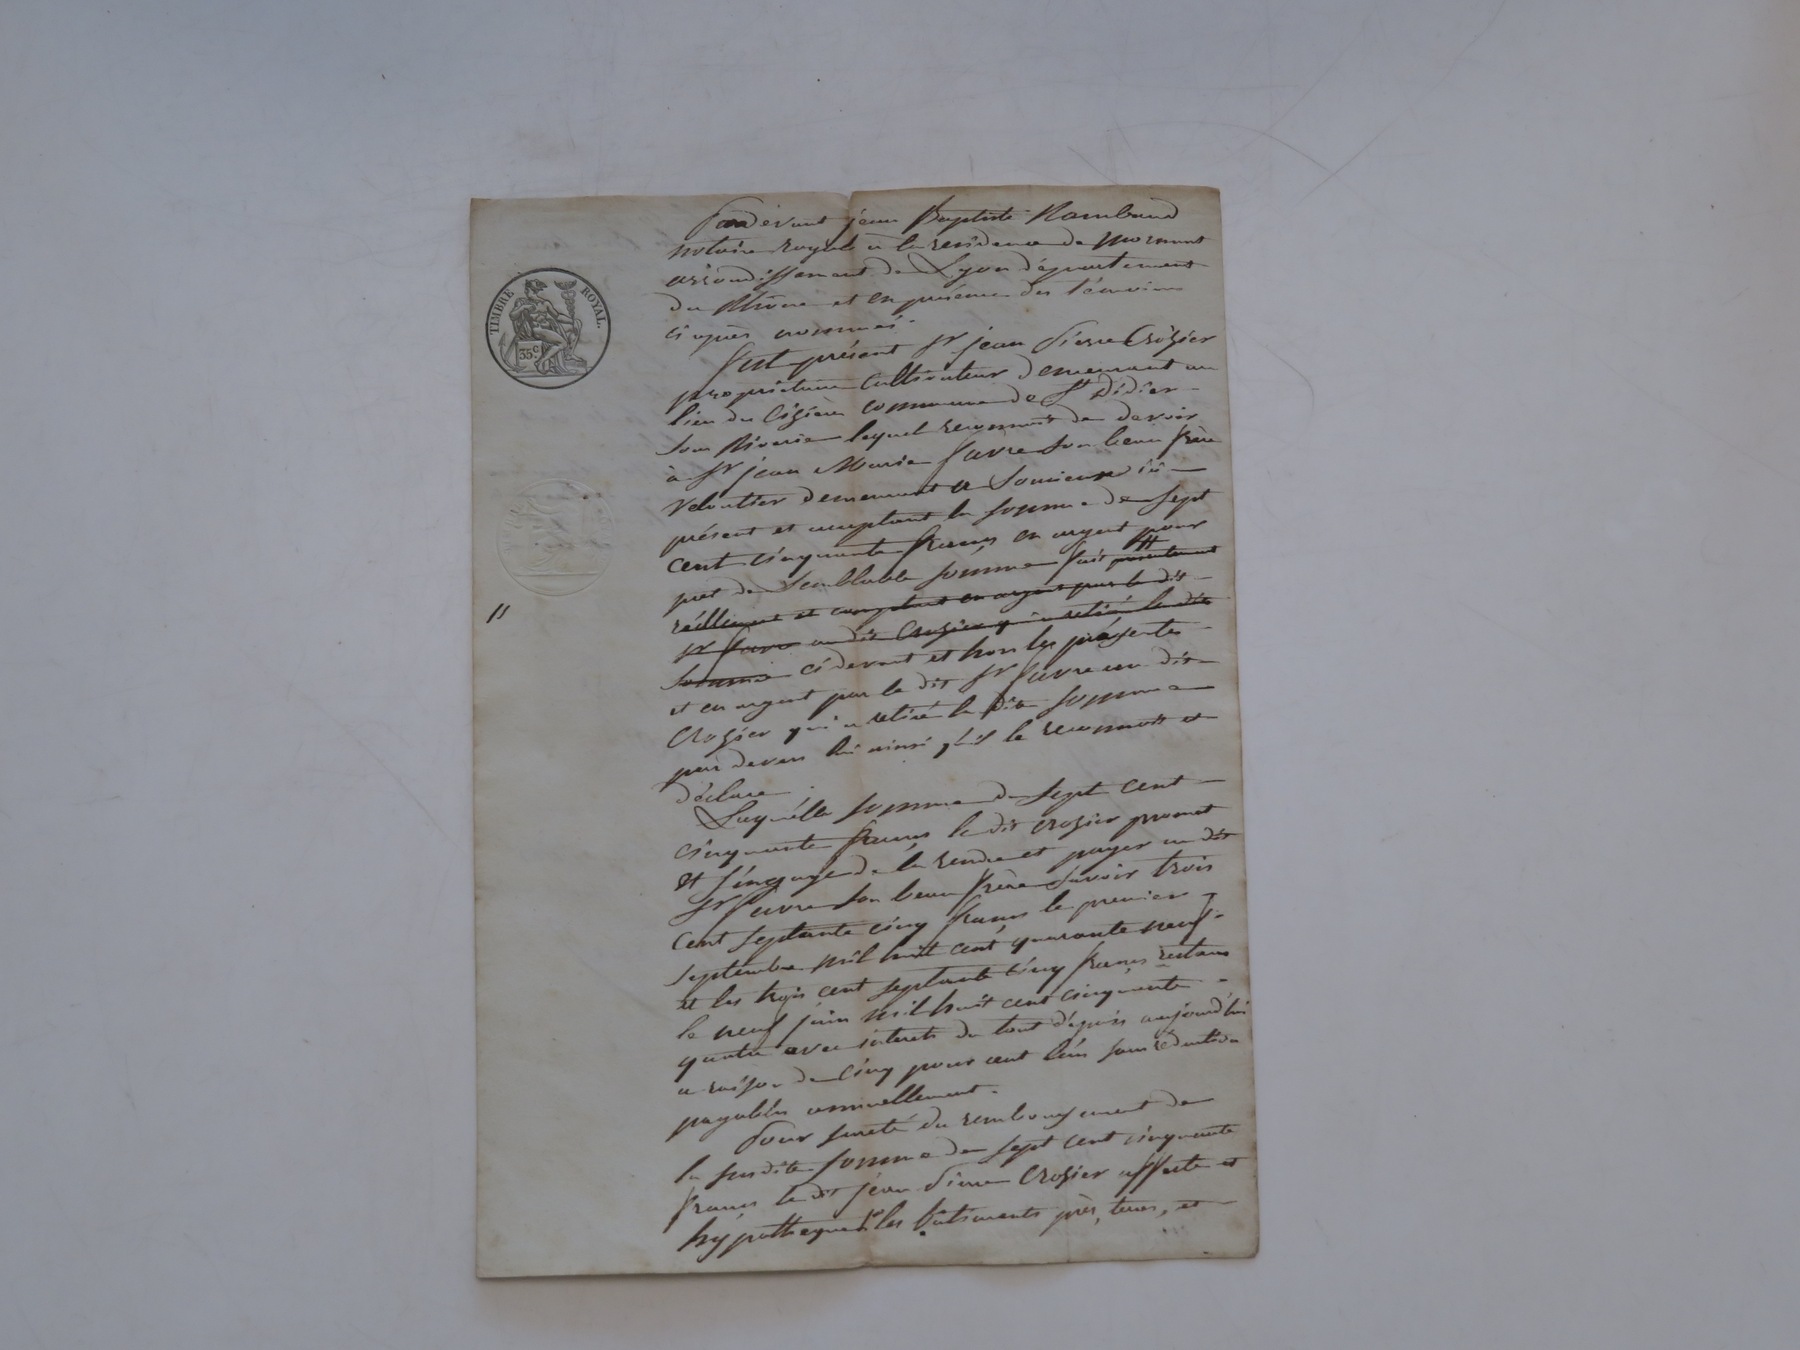 TIMBRE ROYAL.
35 c.
Pardevant jean Baptiste Rambaud
notaire royal à la residence de Mornant
arrondissement de Lyon département
du Rhône et en présence des témoins
ci après nommés.
fut présent sr jean Pierre Crozier
propriétaire cultivateur demeurant au
lieu du commune de St Didier
sous Riverie lequel reconnoit de devoir
à sr jean Marie favre son beau frère
veloutier demeurant a Soucieux ici
présent et acceptant la somme de sept
cent cinquante francs en argent pour
pret de semblable somme fait presentement
réellement et comptant en argent par le dit
sr favre au dit Crozier qui a retiré la dite
somme ci devant et hors les présentes
et en argent par le dit sr favre au dit
Crozier qui a retiré la dite somme
par devers lui ainsi qu'il le reconnoit et
déclare.
Laquelle somme de sept cent
cinquante francs le dit Crozier promet
et s'engage de la rendre et payer au dit
sr favre son beau frère savoir trois
cent septante cinq francs le premier
septembre mil huit cent quarante neuf
et les trois cent septante cinq francs restans
le neuf juin mil huit cent cinquante
quatre avec interets du tout dépuis aujourd'hui
a raison de cinq pour cent l'an sans rédaction
payables annuellement.
Pour sureté du remboursement de
la susdite somme de sept cent cinquante
francs le dit jean Pierre Crozier affecte et
hypotheque les bâtiments près, terres, et